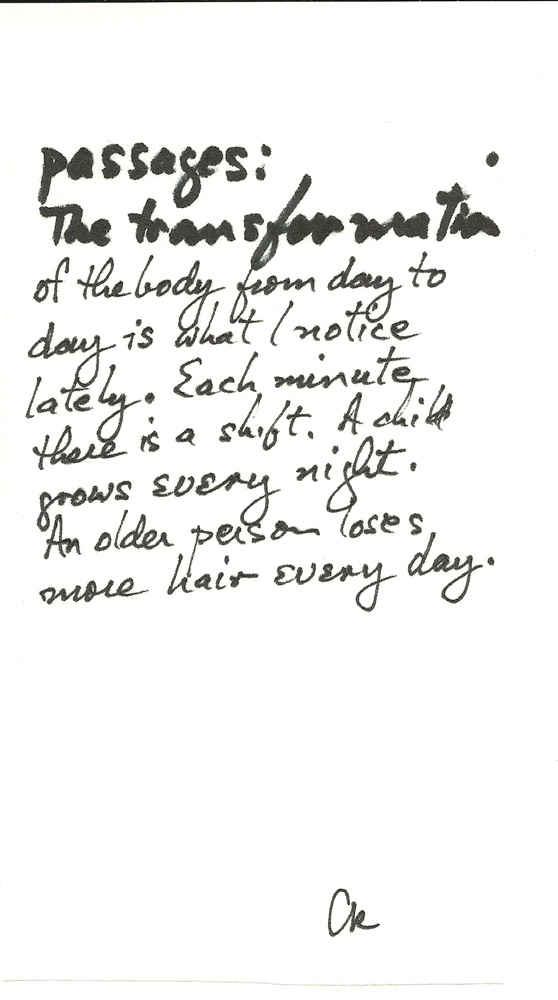 passages:
The transformation
of the body from day to
day is what I notice
lately. Each minute
there is a shift. A child
grows every night.
An older person loses
more hair every day.
CK